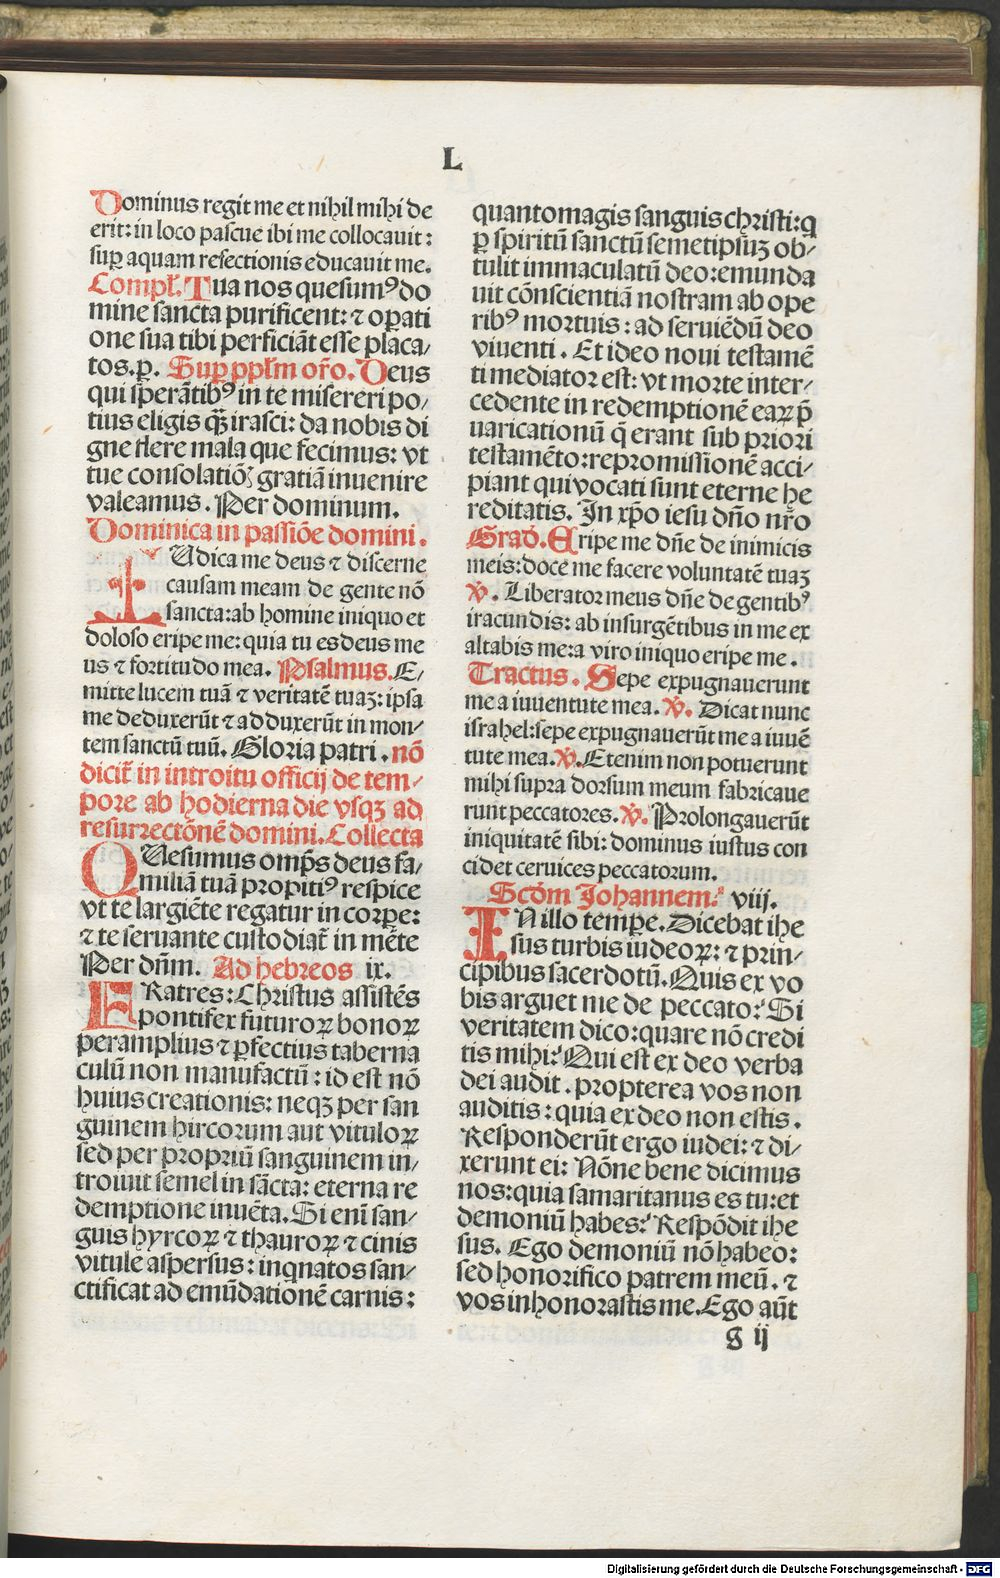 L
Dominus regit me et nihil mihi de
erit: in loco pascue ibi me collocauit:
suꝑ aquam refectionis educauit me.
Compl̃. Tua nos quesumꝰ do
mine sancta purificent: ⁊ oꝑati
one sua tibi perficiãt esse placa⸗
tos.ꝑ. Suꝑ ppl̃m oro᷈. Deus
qui sperãtibꝰ in te misereri po⸗
tius eligis qᷓꝫ irasci: da nobis di
gne flere mala que fecimus: vt
tue consolatiõꝫ gratiã inuenire
valeamus. Per dominum.
Dominica in passiõe domini.
IUdica me deus ⁊ discerne
causam meam de gente nõ
sancta: ab homine iniquo et
doloso eripe me: quia tu es deus me
us ⁊ fortitudo mea. Psalmus. E⸗
mitte lucem tuã ⁊ veritatẽ tuaꝫ: ipsa
me deduxerũt ⁊ adduxerũt in mon⸗
tem sanctũ tuũ. Gloria patri. nõ
dicit᷈ in introitu officij de tem⸗
pore ab hodierna die vsqꝫ ad
resurrectõnẽ domini. Collecta
QUesumus omp̃s deus fa⸗
miliã tuã propitiꝰ respice
vt te largiẽte regatur in corꝑe:
⁊ te seruante custodiat᷈ in mẽte
Per dñm. Ad hebreos ix.
FRatres: Christus assistẽs
pontifex futuroꝝ bonoꝝ
per amplius ⁊ ꝑfectius taberna
culũ non manufactũ: id est nõ
huius creationis: neqꝫ per san
guinem hircorum aut vituloꝝ
sed per propriũ sanguinem in⸗
troiuit semel in sãcta: eterna re
demptione inuẽta. Si enĩ san⸗
guis hyrcoꝝ ⁊ thauroꝝ ⁊ cinis
vitule aspersus: inqnatos san⸗
ctificat ad emũdationẽ carnis:
quantomagis sanguis christi: q
ꝑ spiritũ sanctũ semetipsuꝫ ob⸗
tulit immaculatũ deo: emunda
uit cõnscientiã nostram ab ope
ribꝰ mortuis: ad seruiẽdũ deo
viuenti. Et ideo noui testamẽ
ti mediator est: vt morte inter⸗
cedente in redemptionẽ eaꝝ p̃
uaricationũ q̃ erant sub priori
testamẽto: repromissionẽ acci⸗
piant qui vocati sunt eterne he
reditatis. In xp̃o iesu dño nr̃o
Grad̃. Eripe me dñe de inimicis
meis: doce me facere voluntatẽ tuaꝫ
℣. Liberator meus dñe de gentibꝰ
iracundis: ab insurgẽtibus in me ex
altabis me: a viro iniquo eripe me.
Tractus. Sepe expugnauerunt
me a iuuentute mea. ℣. Dicat nunc
israhel: sepe expugnauerũt me a iuuẽ
tute mea. ℣. Etenim non potuerunt
mihi supra dorsum meum fabricaue
runt peccatores. ℣. Prolongauerũt
iniquitatẽ sibi: dominus iustus con
cidet ceruices peccatorum.
Scd̃m Johannem. viij.
IN illo tempe. Dicebat ihe
sus turbis iudeoꝝ: ⁊ prin⸗
cipibus sacerdotũ. Quis ex vo
bis arguet me de peccato? Si
veritatem dico: quare nõ credi
tis mihi? Qui est ex deo verba
dei audit. propterea vos non
auditis: quia ex deo non estis.
Responderũt ergo iudei: ⁊ di⸗
xerunt ei: Nõne bene dicimus
nos: quia samaritanus es tu: et
demoniũ habes? Respõdit ihe
sus. Ego demoniũ nõ habeo:
sed honorifico patrem meũ. ⁊
vos inhonorastis me. Ego aũt
g ij
Digitalisierung gefördert durch die Deutsche Forschungsgemeinschaft - DFG